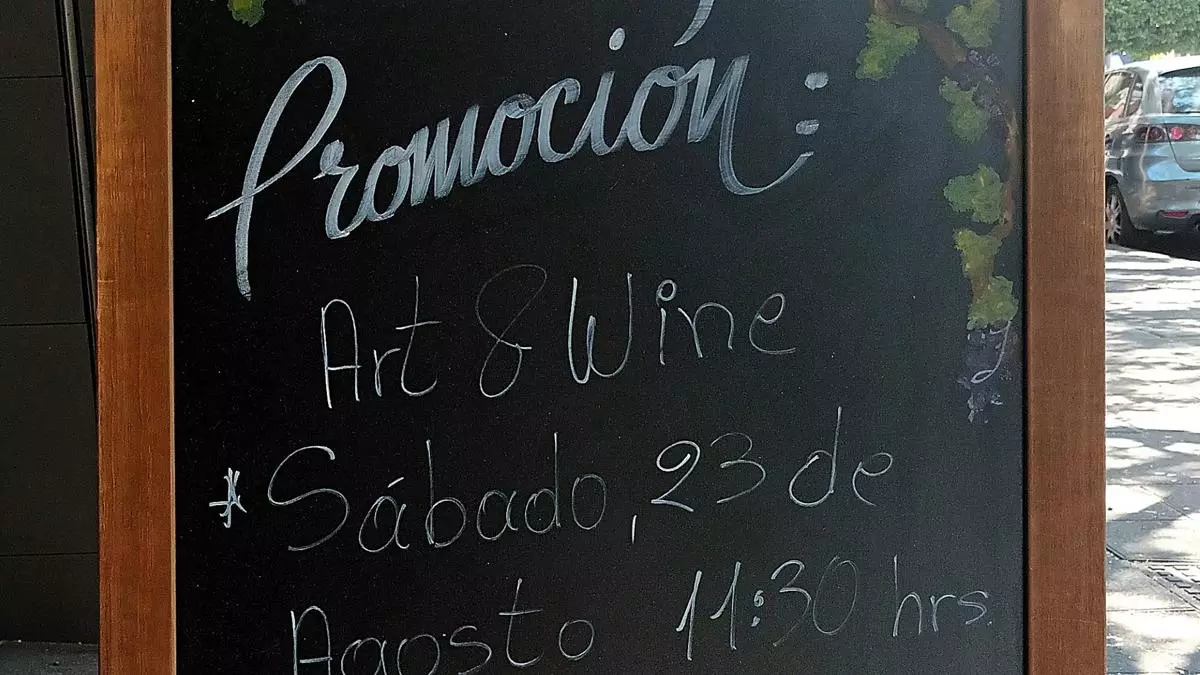 Promoción:
Art & Wine
*Sábado, 23 de
Agosto 11:30 hrs.